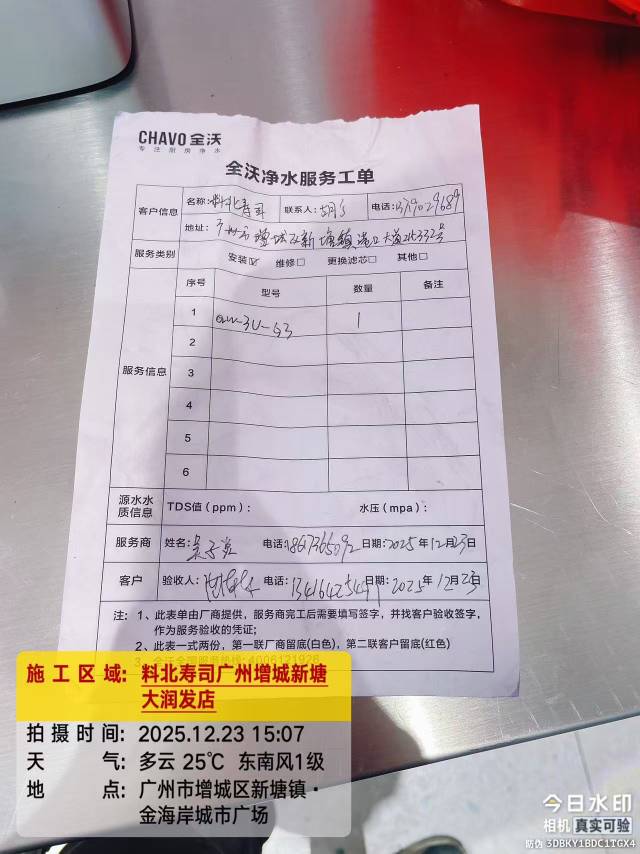 CHAVO 全沃
专注厨房净水
全沃净水服务工单
客户信息
名称: 料北寿司 联系人: 电话:
地址: 广州市增城区新塘镇港口大道北332号
服务类别 安装☑ 维修☐ 更换滤芯☐ 其他☐
服务信息
序号 型号 数量 备注
1 1
2
3
4
5
6
源水水质信息 TDS值（ppm）: 水压（mpa）:
服务商 姓名: 电话: 日期: 2025年12月23日
客户 验收人: 电话: 日期: 2025年12月23日
注: 1、此表单由厂商提供，服务商完工后需要填写签字，并找客户验收签字，
作为服务验收的凭证;
2、此表一式两份，第一联厂商留底(白色)，第二联客户留底(红色)
施工区域: 料北寿司广州增城新塘
大润发店
拍摄时间: 2025.12.23 15:07
天 气: 多云 25℃ 东南风1级
地 点: 广州市增城区新塘镇·
金海岸城市广场
今日水印
相机 真实可验
防伪 3DBKY1BDC1TGX4